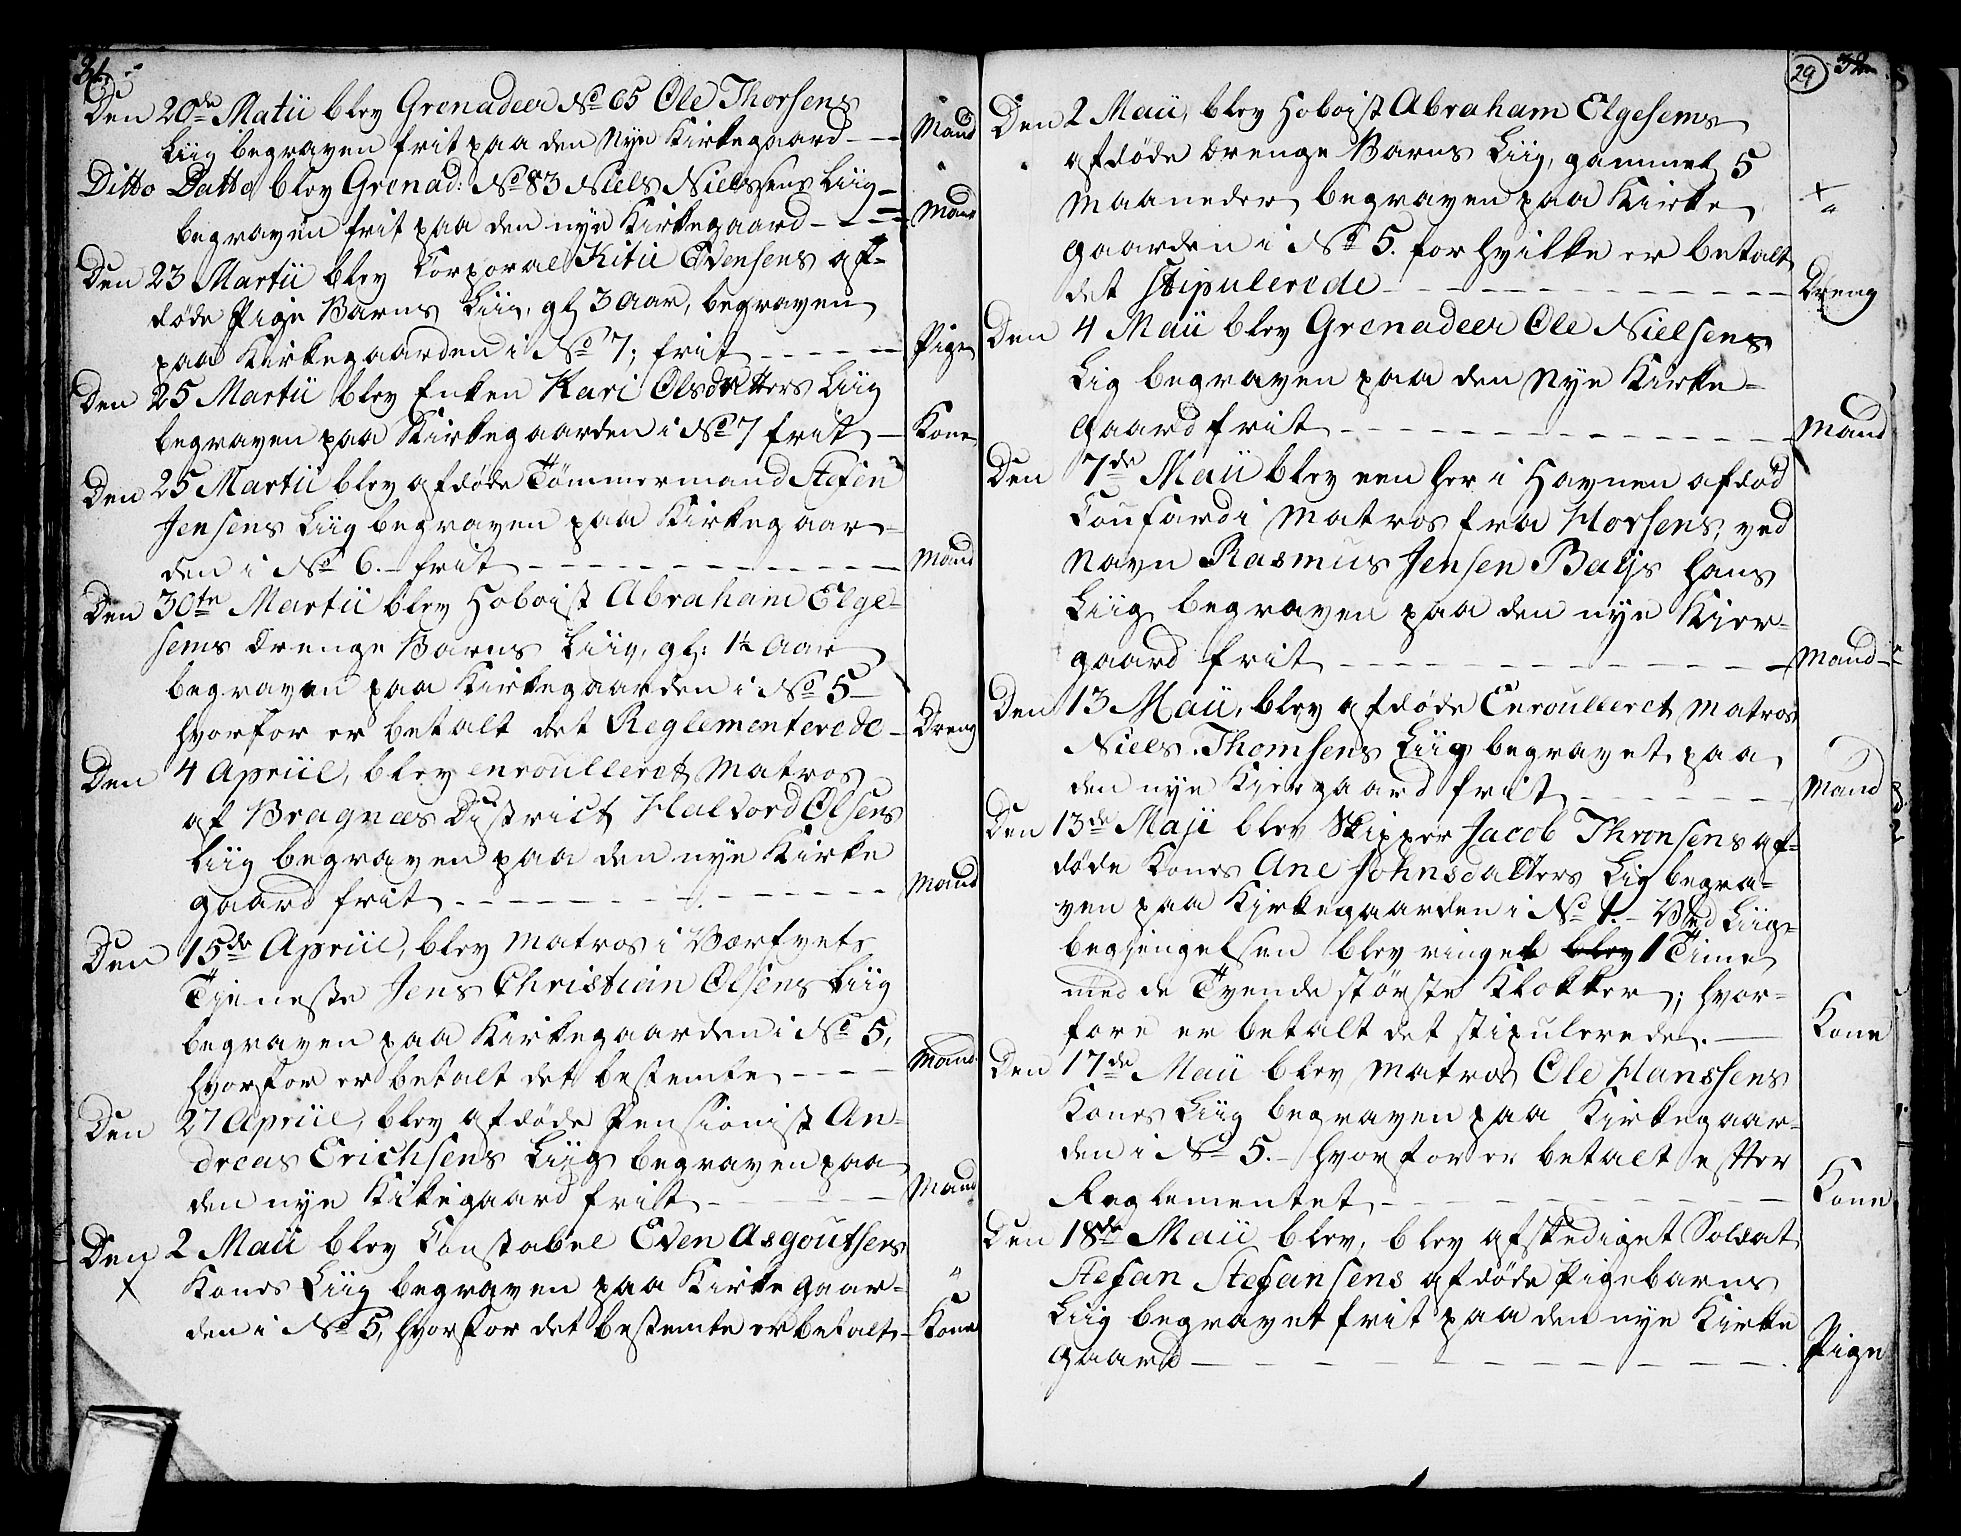 31.
Den 20de Matii blev Grenadeer No 65 Ole Thorsens
Liig begraven frit paa den Nye Kirkegaard - - Mand
Ditto Datto blev Grenad: No 83 Niels Nielssens Liig -
begraven frit paa den nye Kirkegaard - - - Mand
Den 23 Martii blev Corporal Kitil Evensens af-
døde Pige Barns Liig, gl 3 Aar, begraven
paa Kirkegaarden i No 7; frit - - - - - Pige
Den 25 Martii blev Enken Kari Olsdatters Liig
begraven paa Kirkegaarden i No 7 frit - Kone
Den 25 Martii blev afdøde Tømmermand Stefen
Jensens Liig begraven paa Kirkegaar-
den i No 6. - frit - - - - - - - - - - Mand
Den 30te Martii blev Hoboist Abraham Elge-
sems Drenge Barns Liig, gl: 1½ Aar
begraven paa Kirkegaarden i No 5 -
hvorfor er betalt det Reglementerede - Dreng
Den 4 Apriil, blev enroulleret Matros
af Bragnæs District Halvord Olsens
Liig begraven paa den nye Kirke
gaard frit - - - - - - - - - - Mand
Den 15de Apriil, blev Matros i Værfvets
Tjeneste Jens Christian Olsens Liig
begraven paa Kirkegaarden i No 5,
hvorfor er betalt det bestemte - - - - Mand
Den 27 Apriil, blev afdøde Pensionist An-
dreas Erichsens Liig begraven paa
den nye Kikegaard frit - - - - Mand
Den 2 Maii blev Constabel Even Asgoutsens
X Kones Liig begraven paa Kirkegaar- "
den i No 5, hvorfor det bestemte er betalt - Kone
29 32
Den 2 Maii, blev Hoboist Abraham Elgesems
afdøde Drenge Barns Liig, gammel 5
Maaneder begraven paa Kirke X "
gaarden i No 5. for hvilke er betalt
det stipulerede - - - - - - - - - Dreng
Den 4 Maii blev Grenadeer Ole Nielsens
Lig begraven paa den Nye Kirke-
gaard frit - - - - - - - - - - Mand
Den 7de Maii blev een her i Havnen afdød
Coufardi Matros fra Horsens, ved
Navn Rasmus Jensen Bays hans
Liig begraven paa den nye Kier-
gaard frit - - - - - - - - - - Mand -
Den 13 Maii, blev afdøde Enroulleret Matros
Niels Thomsens Liig begravet paa
den nye Kiergaard frit - - - - - - Mand
Den 13de Maji blev Skipper Jacob Thronsens af-
døde Kones Ane Johnsdatters Lig begra-
ven paa Kirkegaarden i No 1. - Ved Liig-
begjengelsen blev ringet blev 1 Time
med de Tvende største Klokker; hvor-
fore er betalt det stipulerede. - Kone
Den 17de Maii blev Matros Ole Hanssens
Kones Liig begraven paa Kirkegaar-
den i No 5. - hvorfor er betalt efter
Reglementet - - - - - - - - Kone
Den 18de Maii blev, blev afskediget Soldat
Stefan Stefansens afdøde Pigebarns
Liig begravet frit paa den nye Kirke
gaard - - - - - - - - - - Pige